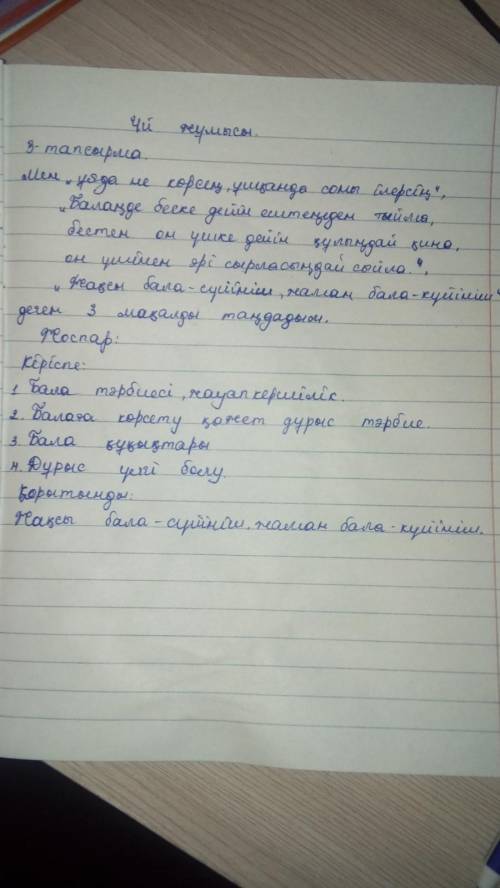 Үй жұмысы.
3-тапсырма.
Мен „ұяда не көрсең, ұшқанда соны ілерсің",
„Балаңды беске дейін ештеңеден тыйма,
бестен он үшке дейін құлыңдай қина,
он үшінен әрі сырласыңдай сыйла.",
„Жақсы бала-сүйініш, жаман бала-күйініш"
деген 3 мақалды таңдадым.
Жоспар:
Кіріспе:
1. Бала тәрбиесі, жауапкершілік.
2. Балаға көрсету қажет дұрыс тәрбие.
3. Бала құқықтары
4. Дұрыс үлгі болу.
Қорытынды:
Жақсы бала-сүйініш, жаман бала-күйініш.